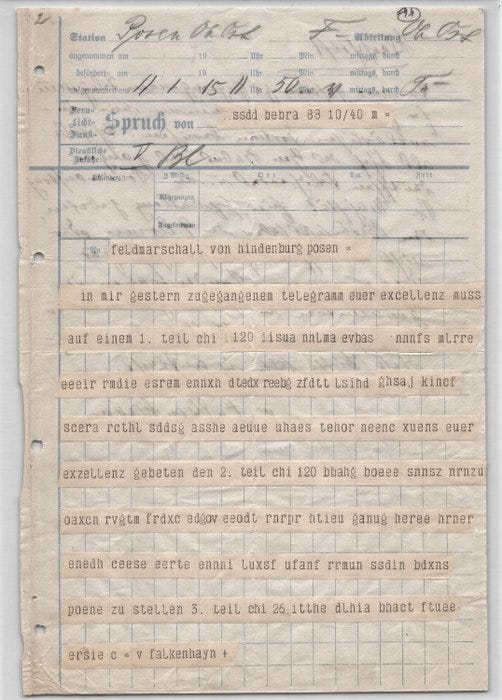 2
Station Posen Ob Ost F- Abteilung Ob Ost
angenommen am / 19 Uhr Min mittags, durch
befördert am / 19 Uhr Min mittags, durch
aufgenommen am 11/1 1915 11 Uhr 50 Min mittags, durch
Fern-
Licht-
Funk-
Spruch von ssdd bebra 88 10/40 m =
Dienstliche
Zusätze:
Ort Zeit
Abgegangen
Angekommen
An feldmarschall von hindenburg posen =
in mir gestern zugegangenem telegramm euer excellenz muss
auf einem 1. teil chi 120 iisua nnlma evbas nnnfs mlrre
eeeir rmdie esrem ennxh dtedx reebg zfdtt lsihd ghsaj kincf
scera rcthl sddsg asshe aeuue uhaes tehor neenc xuens euer
exzellenz gebeten den 2. teil chi 120 bbahg boeee snnsz nrnzu
oaxcn rvgtm frdxc edgov eeodt rnrpr htieu ganug heree hrner
enedh ceese eerte ennni luxsf ufanf rrmun ssdin bdxns
poene zu stellen 3. teil chi 26 itthe dlhia bhact ftuee
ersie c = v falkenhayn +